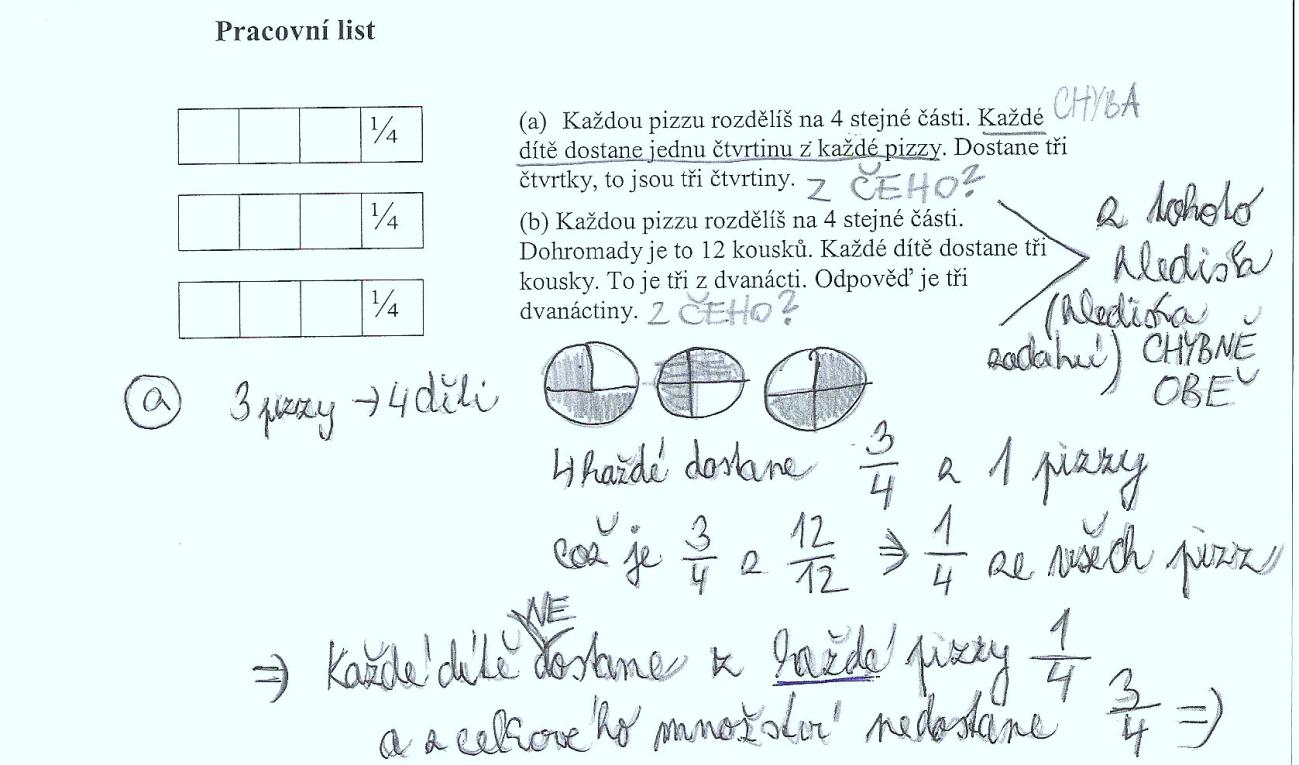 Pracovní list
1/4
1/4
1/4
(a) Každou pizzu rozdělíš na 4 stejné části. Každé CHYBA
dítě dostane jednu čtvrtinu z každé pizzy. Dostane tři
čtvrtky, to jsou tři čtvrtiny. Z ČEHO?
(b) Každou pizzu rozdělíš na 4 stejné části.
Dohromady je to 12 kousků. Každé dítě dostane tři
kousky. To je tři z dvanácti. Odpověď je tři
dvanáctiny. Z ČEHO?
z tohoto
hlediska
(hlediska
zadání) CHYBNĚ
OBĚ
a 3 pizzy → 4 děti
4 každé dostane 3/4 z 1 pizzy
což je 3/4 z 12/12 ⇒ 1/4 ze všech pizz
⇒ Každé dítě NEdostane z každé pizzy 1/4
a z celkového množství nedostane 3/4 ⇒